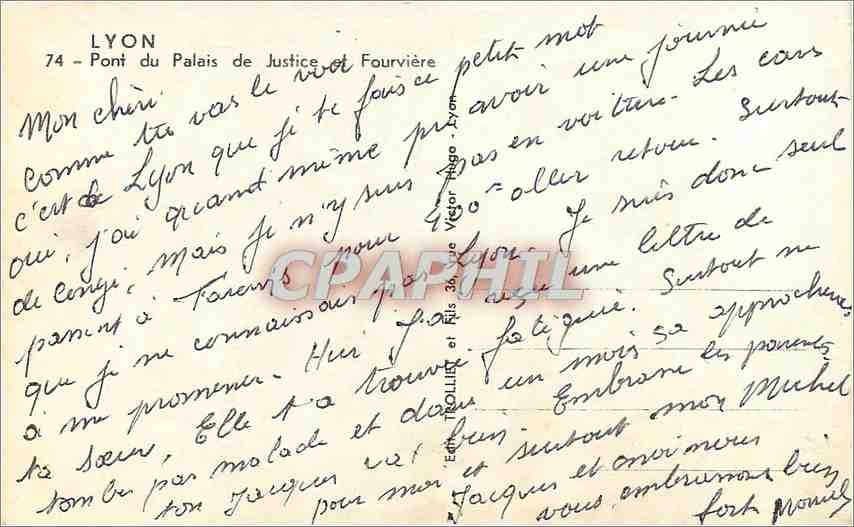 LYON
74 - Pont du Palais de Justice et Fourvière
Mon chéri
Comme tu vas le voir
c'est de Lyon que je te fais ce petit mot
oui, j'ai quand même pu avoir une journée
de congé, mais je n'y suis pas en voiture. Les cars
passent à Tarents pour 450 aller retour. Surtout
que je ne connaissais pas Lyon. Je suis donc seul
à me promener. Hier j'ai reçu une lettre de
ta sœur. Elle t'a trouvé fatigué. Surtout ne
tombes pas malade et dans un mois sa approchera
ton Jacques va bien. Embrasse les parents
pour moi et surtout mon Michel
Jacques et moi nous
vous embrassons bien
fort
Edit. TROLLIET et Fils 36, rue Victor Hugo - Lyon
CPAPHIL